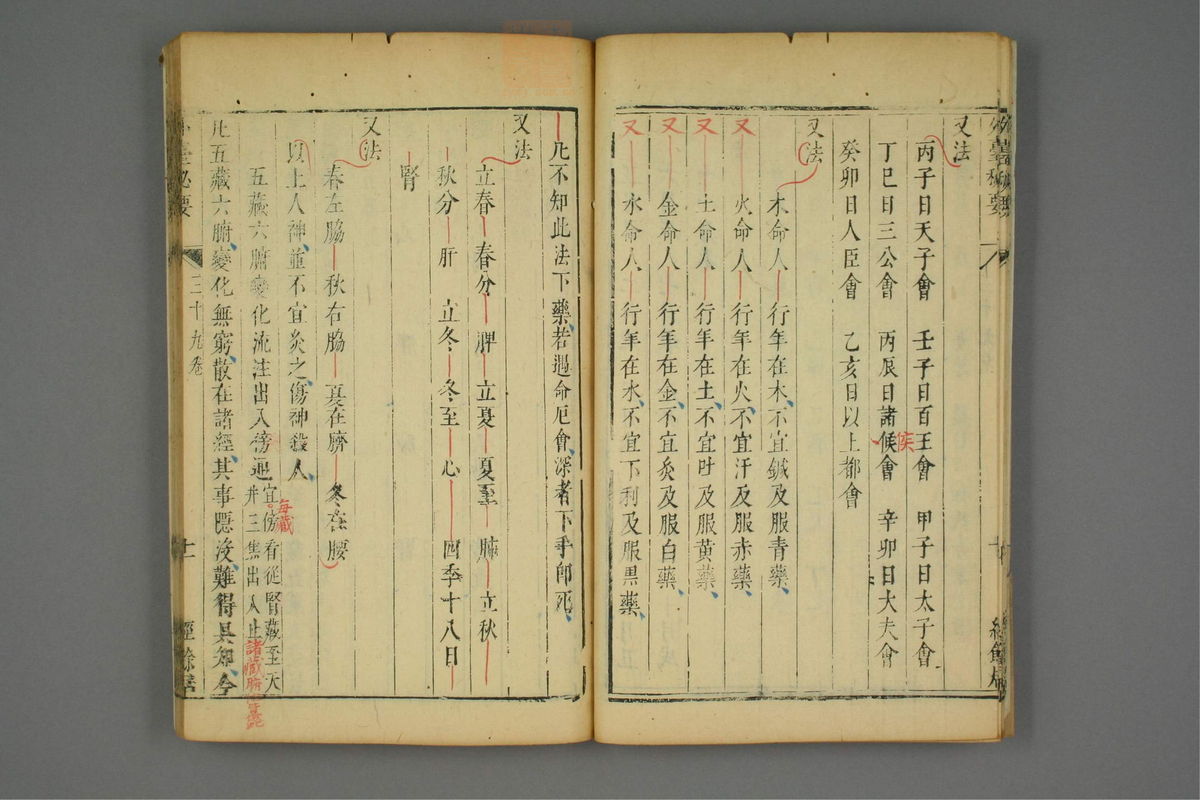 又法
丙子日天子會　壬子日百王會　甲子日太子會
丁巳日三公會　丙辰日諸候會　辛卯日大夫會
侯
癸卯日人臣會　乙亥日以上都會
又法
木命人　行年在木不宜鍼及服青藥
又　火命人　行年在火不宜汗及服赤藥
又　土命人　行年在土不宜吐及服黃藥
又　金命人　行年在金不宜灸及服白藥
又　水命人　行年在水不宜下利及服黒藥
凡不知此法下藥若遇命厄會深者下手即死
又法
立春　春分　脾　立夏　夏至　肺　立秋
秋分　肝　立冬　冬至　心　四季十八日
腎
又法
春左脇　秋右脇　夏在臍　冬在腰
以上人神並不宜灸之傷神殺人
五藏六腑變化流注出入傍通
宜傍看從腎藏至大
井三焦出入止
每藏
諸藏
凡五藏六腑變化無窮散在諸經其事隱沒難得具知今
三十九卷
十一
經餘居
外臺秘要